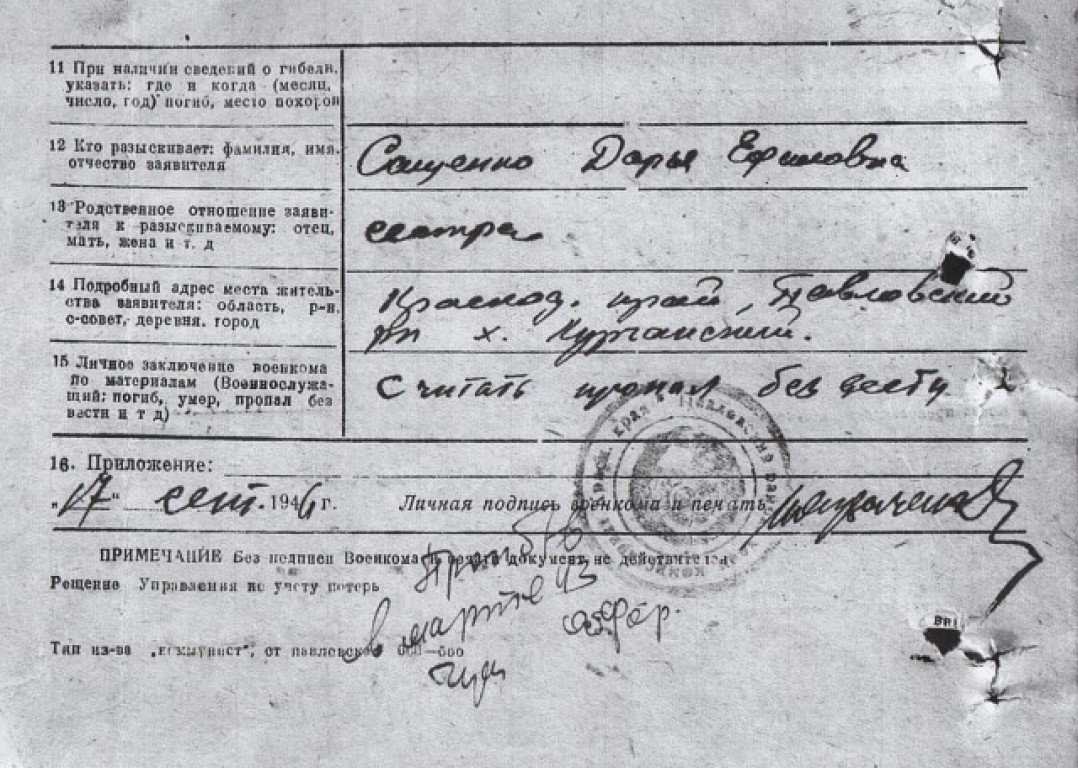 11 При наличии сведений о гибели,
указать: где и когда (месяц,
число, год) погиб, место похорон
12 Кто разыскивает: фамилия, имя,
отчество заявителя
Сащенко Дарья Ефимовна
13 Родственное отношение заяви-
теля к разыскиваемому: отец,
мать, жена и т. д
сестра
14 Подробный адрес места житель-
ства заявителя: область, р-н,
с-совет, деревня, город
Краснод. край, Павловский
рн х. Курганский.
15 Личное заключение военкома
по материалам (Военнослужа-
щий: погиб, умер, пропал без
вести и т д)
Считать пропал без вести
16. Приложение:
„17" сент. 1946 г. Личная подпись военкома и печать
ПРИМЕЧАНИЕ Без подписи Военкома и печати документ не действителен
Рещение Управления по учету потерь
в марте 43
Тип из-ва „коммунист", от павловской